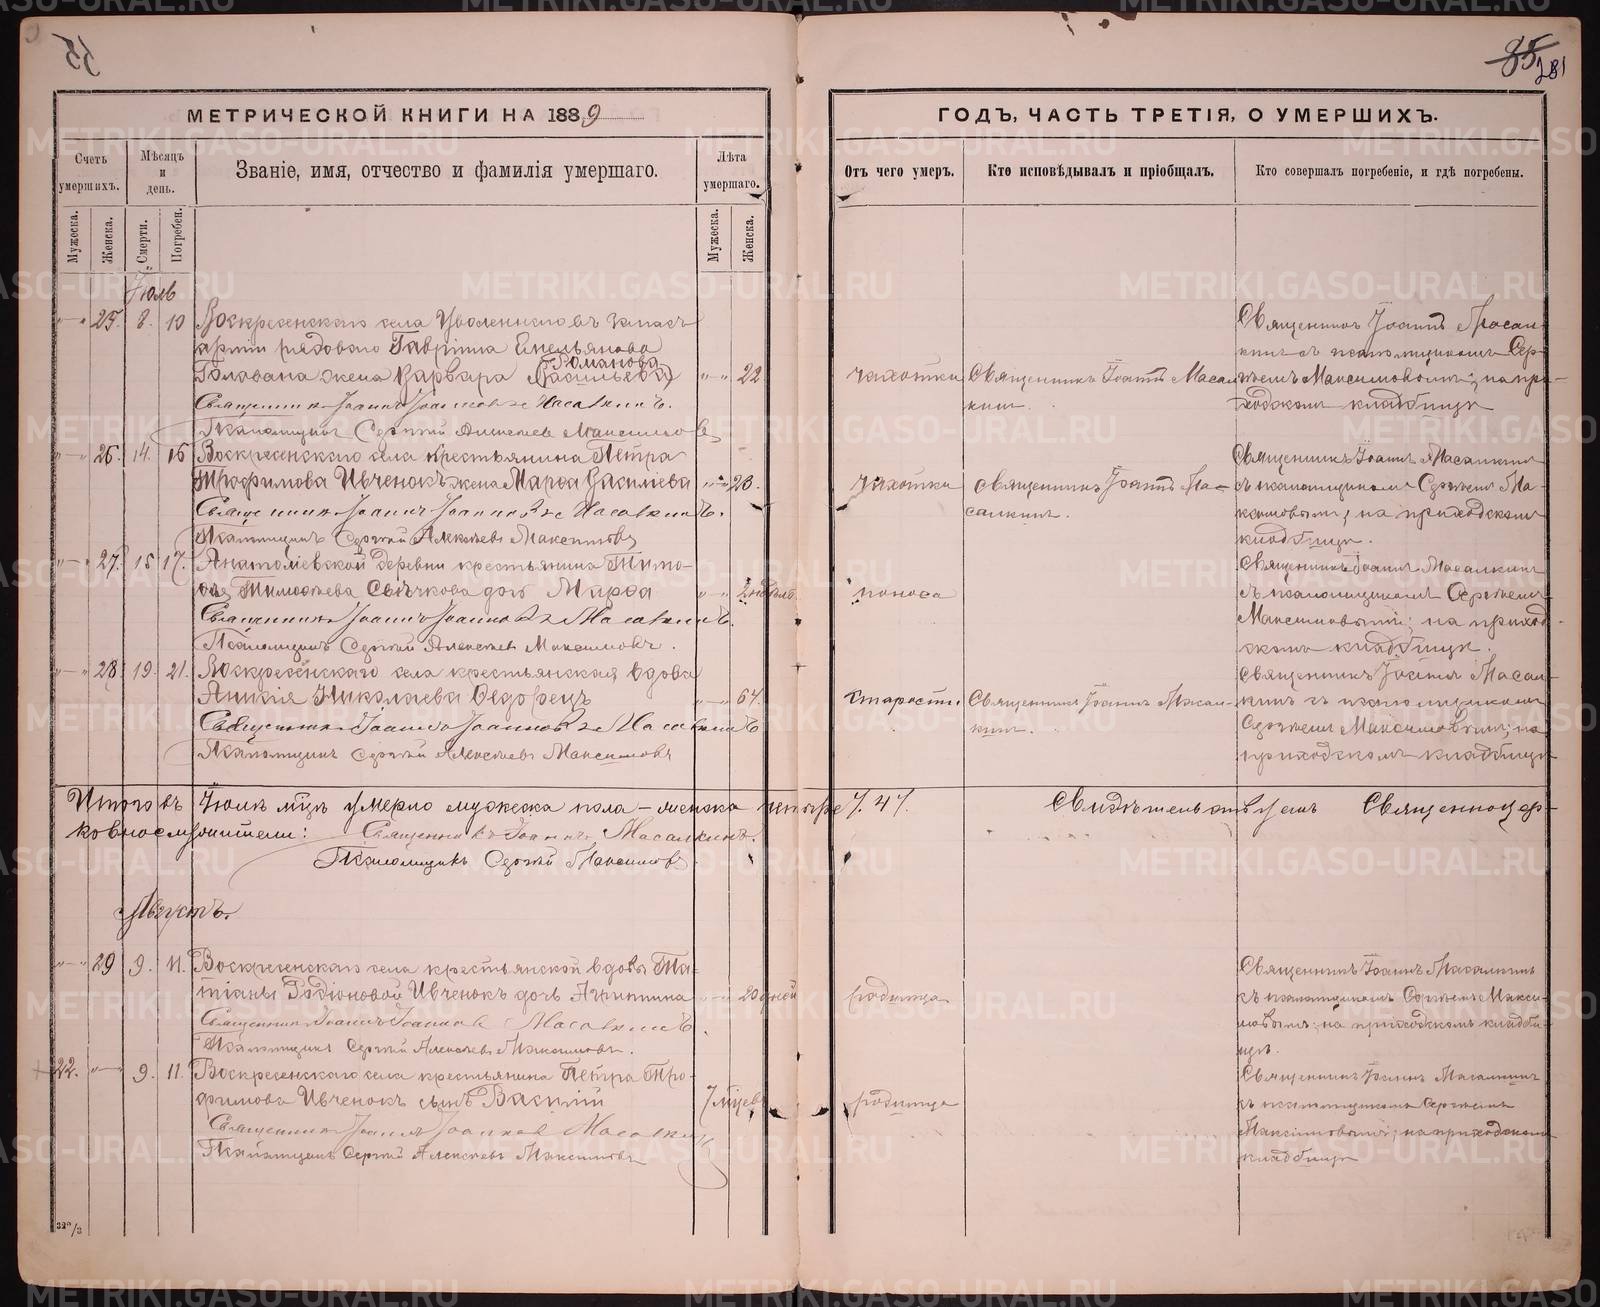 85
281
МЕТРИЧЕСКОЙ КНИГИ НА 1889
ГОДЪ, ЧАСТЬ ТРЕТІЯ, О УМЕРШИХЪ.
Счетъ умершихъ.
Мѣсяцъ и день.
Званіе, имя, отчество и фамилія умершаго.
Лѣта умершаго.
Отъ чего умеръ.
Кто исповѣдывалъ и пріобщалъ.
Кто совершалъ погребеніе, и гдѣ погребены.
Мужеска.
Женска.
Смерти.
Погребен.
Мужеска.
Женска.
Іюль
25. 8. 10 Воскресенскаго села Уволеннаго въ запасъ
арміи рядоваго Гавріила Емельянова
Романова
Голована жена Варвара
22
чахотки
Священникъ Іоаннъ Масал-
кинъ.
Священникъ Іоаннъ Масал-
кинъ съ псаломщикомъ Сер-
гѣемъ Максимовымъ; на при-
ходскомъ кладбищѣ
Священникъ Іоаннъ Іоанновъ Масалкинъ.
Псаломщикъ Сергѣй Алексѣевъ Максимовъ
26. 14. 16 Воскресенскаго села крестьянина Петра
Трофимова Ивченокъ жена Марфа Василиева
23.
чахотки
Священникъ Іоаннъ Ма-
салкинъ.
Священникъ Іоаннъ Масалкинъ
съ псаломщикомъ Сергѣемъ Ма-
ксимовымъ; на приходскомъ
кладбищѣ.
Священникъ Іоаннъ Іоанновъ Масалкинъ.
Псаломщикъ Сергѣй Алексѣевъ Максимовъ
27. 15 17. Анатоліевской деревни крестьянина Тимо-
фея Тимофѣева Свѣчкова дочь Марфа
2 недѣль
поноса
Священникъ Іоаннъ Масалкинъ
съ псаломщикомъ Сергѣемъ
Максимовымъ; на приход-
скомъ кладбищѣ.
Священникъ Іоаннъ Іоанновъ Масалкинъ.
Псаломщикъ Сергѣй Алексѣевъ Максимовъ.
28. 19. 21. Воскресенскаго села крестьянская вдова
Анисія Николаева Федорецъ
64.
Старости.
Священникъ Іоаннъ Масал-
кинъ.
Священникъ Іоаннъ Масал-
кинъ съ псаломщикомъ
Сергѣемъ Максимовымъ; на
приходскомъ кладбищѣ
Священникъ Іоаннъ Іоанновъ Масалкинъ
Псаломщикъ Сергѣй Алексѣевъ Максимовъ
Итого въ Іюлѣ мѣсяцѣ умерло мужеска пола — женска четыре /. 4 /. Свидѣтельствуемъ Священноцер-
ковнослужители: Священникъ Іоаннъ Масалкинъ.
Псаломщикъ Сергѣй Максимовъ
Августъ.
29 9. 11. Воскресенскаго села крестьянской вдовы Та-
тіаны Родіоновой Ивченокъ дочь
20 дней
родимца
Священникъ Іоаннъ Масалкинъ
съ псаломщикомъ Сергѣемъ Макси-
мовымъ; на приходскомъ кладби-
щѣ.
Священникъ Іоаннъ Іоанновъ Масалкинъ.
Псаломщикъ Сергѣй Алексѣевъ Максимовъ.
22. 9. 11. Воскресенскаго села крестьянина Петра Тро-
фимова Ивченокъ сынъ Василій
7 мѣсяцев
родимца
Священникъ Іоаннъ Масалкинъ
съ псаломщикомъ Сергѣемъ
Максимовымъ; на приходскомъ
кладбищѣ
Священникъ Іоаннъ Іоанновъ Масалкинъ
Псаломщикъ Сергѣй Алексѣевъ Максимовъ
METRIKI.GASO-URAL.RU